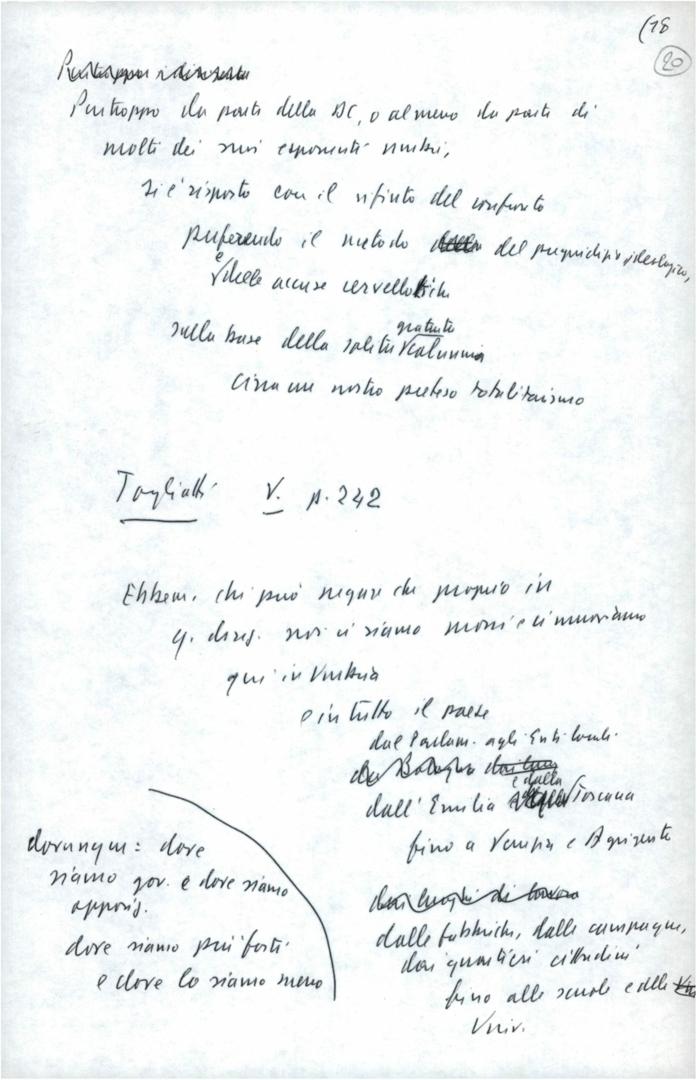 (18
20
Purtroppo
Purtroppo da parte della DC, o almeno da parte di
molti dei suoi esponenti umbri,
si è risposto con il rifiuto del confronto
preferendo il metodo del pregiudizio ideologico,
e delle accuse cervellotiche
gratuita
sulla base della solita calunnia
circa un nostro preteso totalitarismo
Togliatti V. p. 242
Ebbene, chi può negare che proprio in
q. direz. noi ci siamo mossi e ci muoviamo
qui in Umbria
e in tutto il paese
dal Parlam. agli Enti locali
da Bologna
e dalla
dall'Emilia Toscana
fino a Venezia e Agrigento
dai luoghi di lavoro
dalle fabbriche, dalle campagne,
dai quartieri cittadini
fino alle scuole e delle
Univ.
dovunque: dove
siamo gov. e dove siamo
oppos.
dove siamo più forti
e dove lo siamo meno